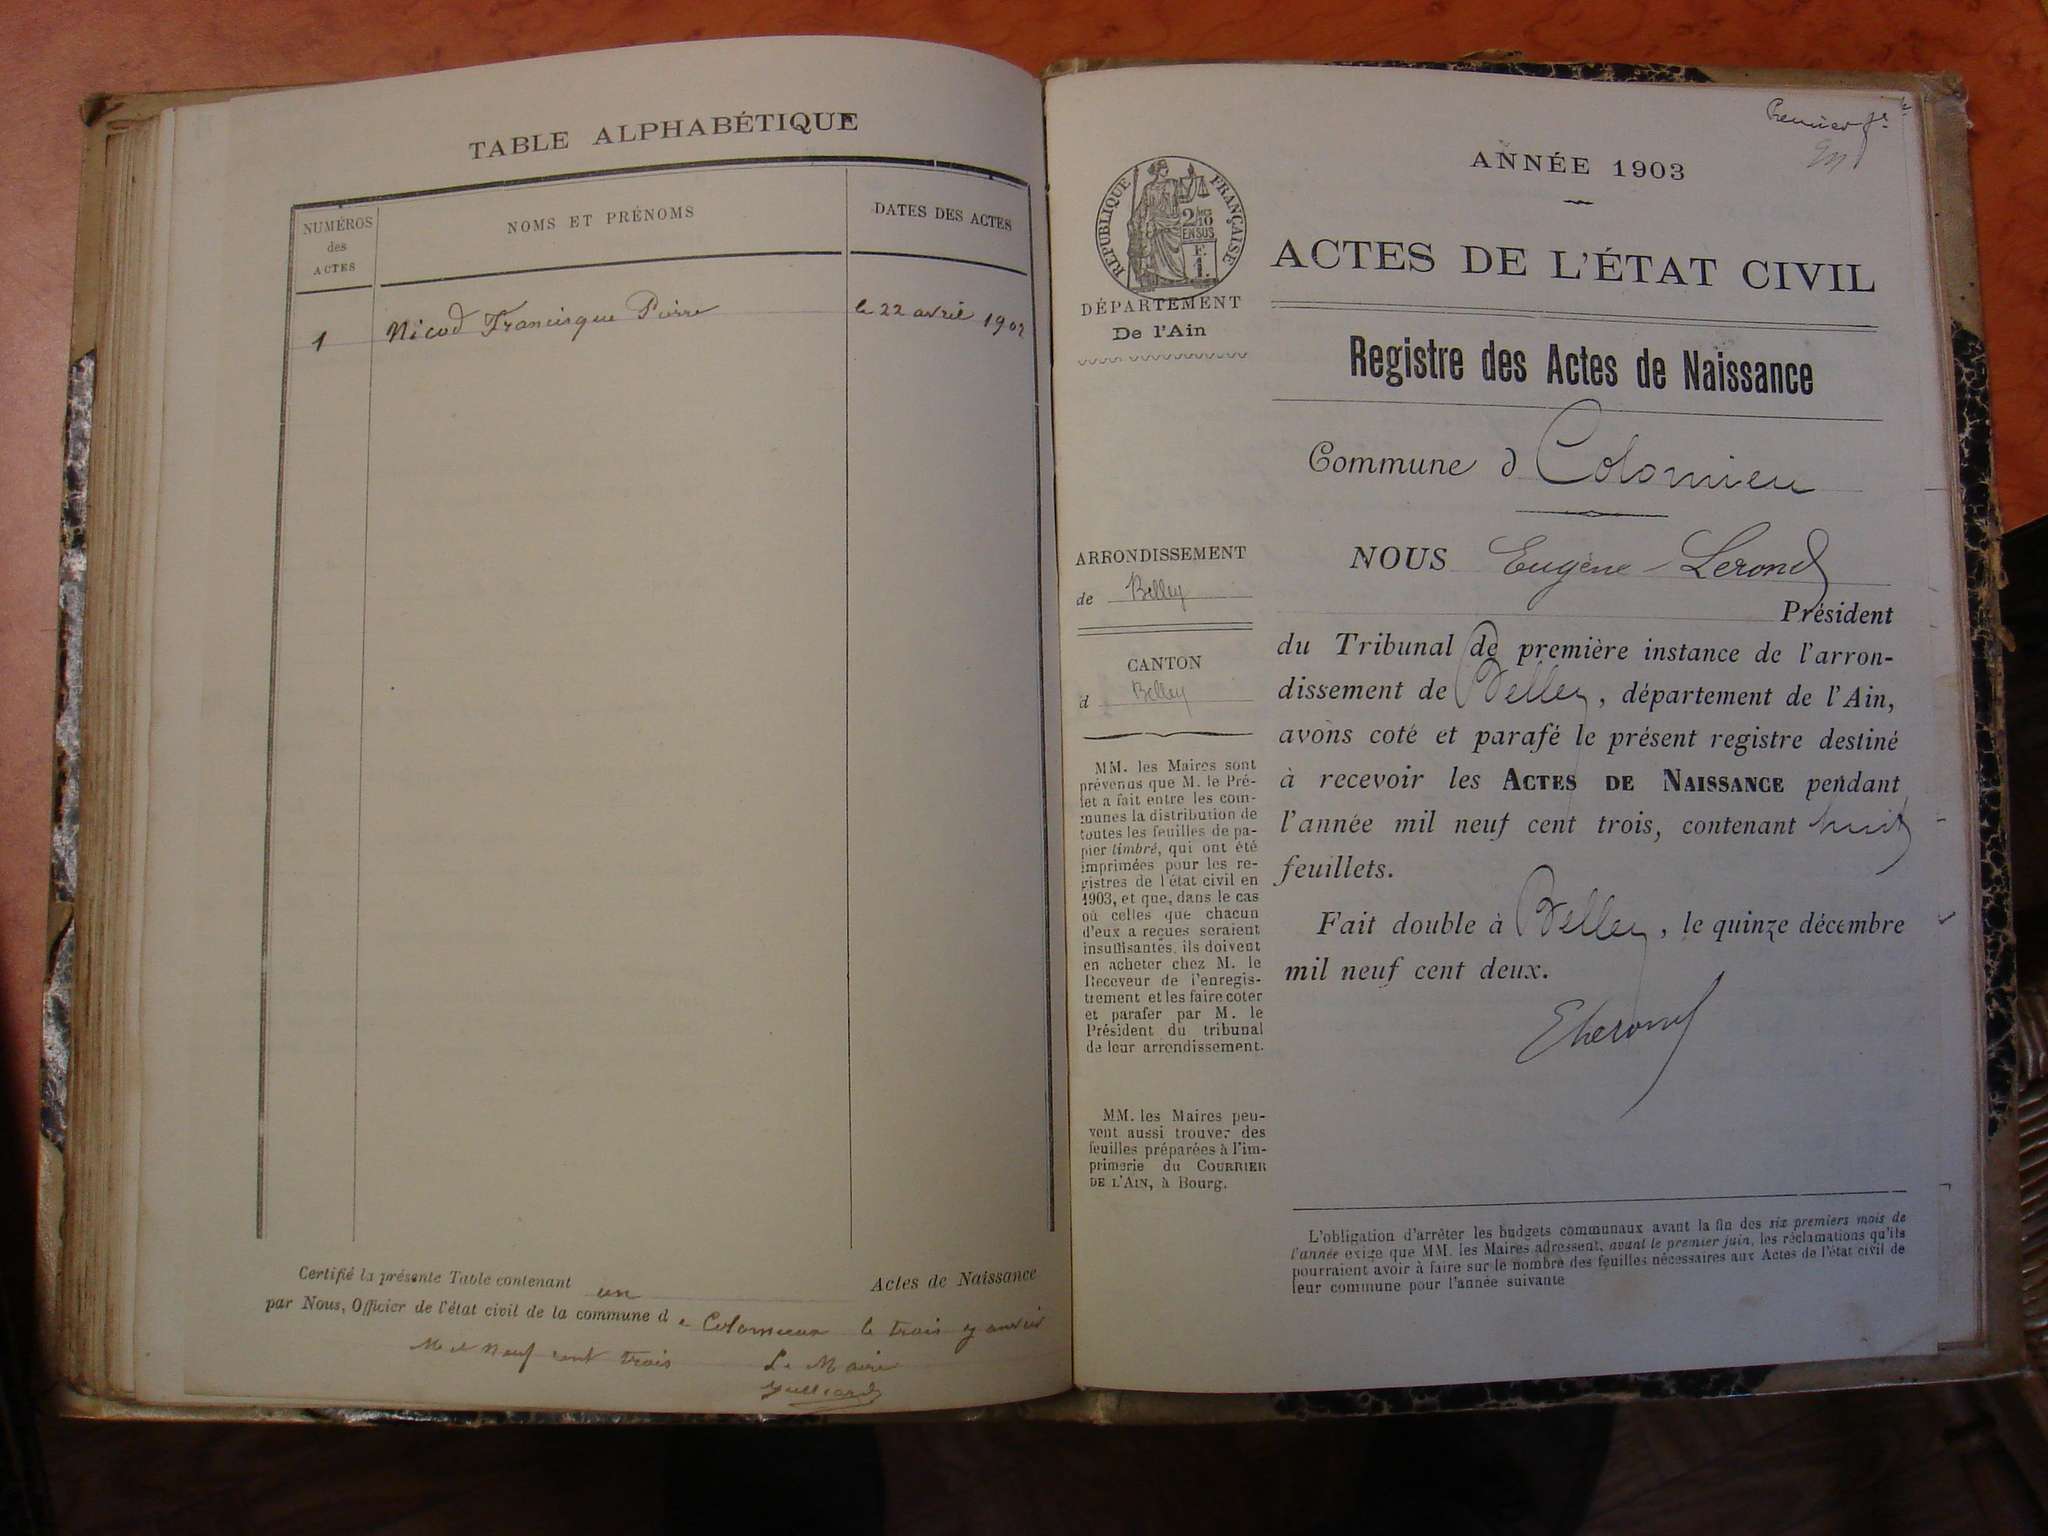 TABLE ALPHABÉTIQUE
NUMÉROS
des
ACTES
NOMS ET PRÉNOMS
DATES DES ACTES
1
Nicod Francisque Pierre
le 22 avril 1902
Certifié la présente Table contenant un Actes de Naissance
par Nous, Officier de l'état civil de la commune de Colomieu le trois janvier
Mil neuf cent trois Le Maire
Premier
RÉPUBLIQUE FRANÇAISE
DÉPARTEMENT
De l'Ain
ARRONDISSEMENT
de Belley
CANTON
d Belley
MM. les Maires sont
prévenus que M. le Pré-
fet a fait entre les com-
munes la distribution de
toutes les feuilles de pa-
pier timbré, qui ont été
imprimées pour les re-
gistres de l'état civil en
1903, et que, dans le cas
où celles que chacun
d'eux a reçues seraient
insuffisantes, ils doivent
en acheter chez M. le
Receveur de l'enregis-
trement et les faire coter
et parafer par M. le
Président du tribunal
de leur arrondissement.
MM. les Maires peu-
vent aussi trouver des
feuilles préparées à l'im-
primerie du COURRIER
DE L'AIN, à Bourg.
ANNÉE 1903
ACTES DE L'ÉTAT CIVIL
Registre des Actes de Naissance
Commune d Colomieu
NOUS Eugène Lerond
Président
du Tribunal de première instance de l'arron-
dissement de Belley, département de l'Ain,
avons coté et parafé le présent registre destiné
à recevoir les ACTES DE NAISSANCE pendant
l'année mil neuf cent trois, contenant huit
feuillets.
Fait double à Belley, le quinze décembre
mil neuf cent deux.
ELerond
L'obligation d'arrêter les budgets communaux avant la fin des six premiers mois de
l'année exige que MM. les Maires adressent, avant le premier juin, les réclamations qu'ils
pourraient avoir à faire sur le nombre des feuilles nécessaires aux Actes de l'état civil de
leur commune pour l'année suivante